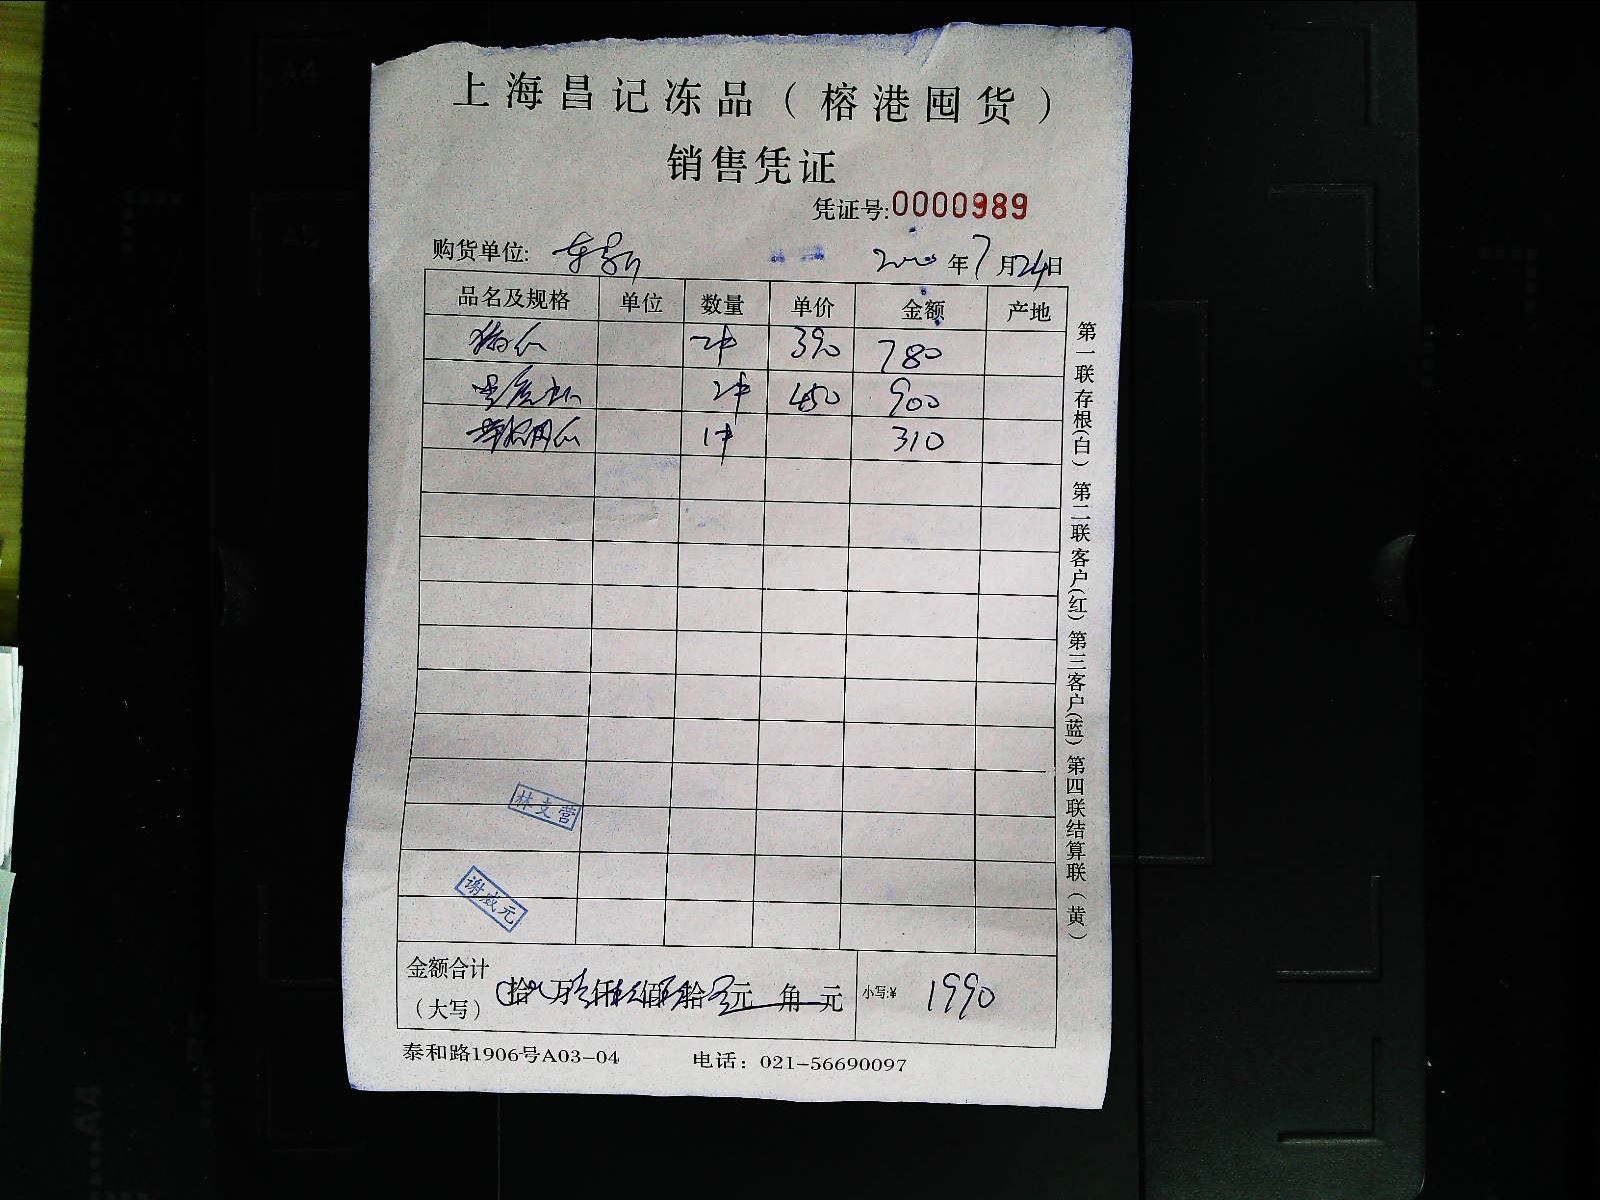 上海昌记冻品（榕港囤货）
销售凭证
凭证号:0000989
购货单位:
2020年7月24日
品名及规格 单位 数量 单价 金额 产地
2件 390 780
2件 450 900
1件 310
林文营
谢威元
金额合计（大写） 拾 万 仟 佰 拾 元 角 元 小写:¥ 1990
泰和路1906号A03-04 电话：021-56690097
第一联存根（白） 第二联客户（红） 第三客户（蓝） 第四联结算联（黄）